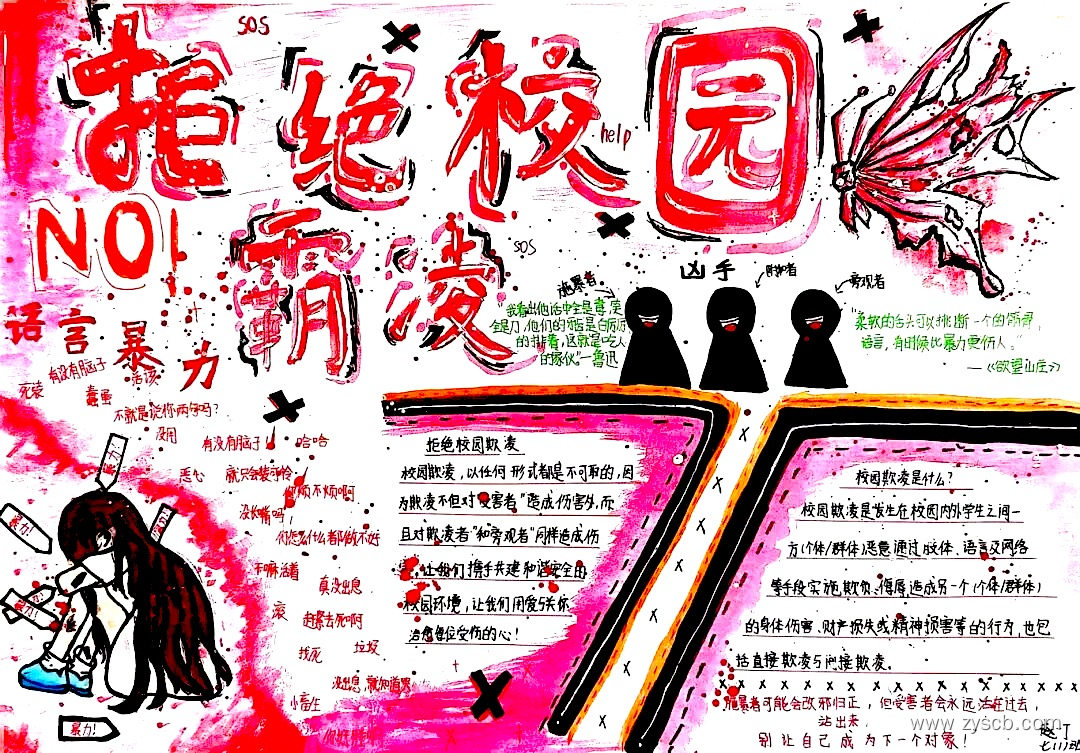 SOS
拒绝校园
help
NO!
霸凌
SOS
凶手
施暴者
旁观者
我看出他话中全是毒,笑
全是刀,他们的牙齿是白厉厉
的排着,这就是吃人
的家伙"—鲁迅
"柔软的舌头可以挑断一个的颈骨,
语言,有时候比暴力更伤人。"
—《欲望山庄》
语言暴力
有没有脑子
死装
蠢蛋
活该
不就是说你两句吗?
没用
有没有脑子
哈哈
恶心
就只会装可怜
烦不烦啊
没长嘴吗!
你怎么什么都做不好
干嘛活着
真没出息
滚
赶紧去死啊
找死
垃圾
没出息,就知道哭
小畜生
暴力!
暴力!
暴力!
拒绝校园欺凌
校园欺凌,以任何形式都是不可取的,因
为欺凌不但对"受害者"造成伤害外,而
且对欺凌者"和旁观者"同样造成伤
害,让我们携手共建和谐安全的
校园环境,让我们用爱与关怀
治愈每位受伤的心!
校园欺凌是什么?
校园欺凌是发生在校园内外学生之间一
方(个体/群体)恶意通过肢体、语言及网络
等手段实施欺负、侮辱造成另一个(个体/群体)
的身体伤害、财产损失或精神损害等的行为,也包
括直接欺凌与间接欺凌。
施暴者可能会改邪归正,但受害者会永远活在过去,
站出来,
别让自己成为下一个对象!
www.zyscb.com